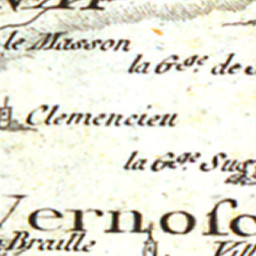 le Masson
la Gge. de
Clemencieu
la Gge.
Vernosc
Braille